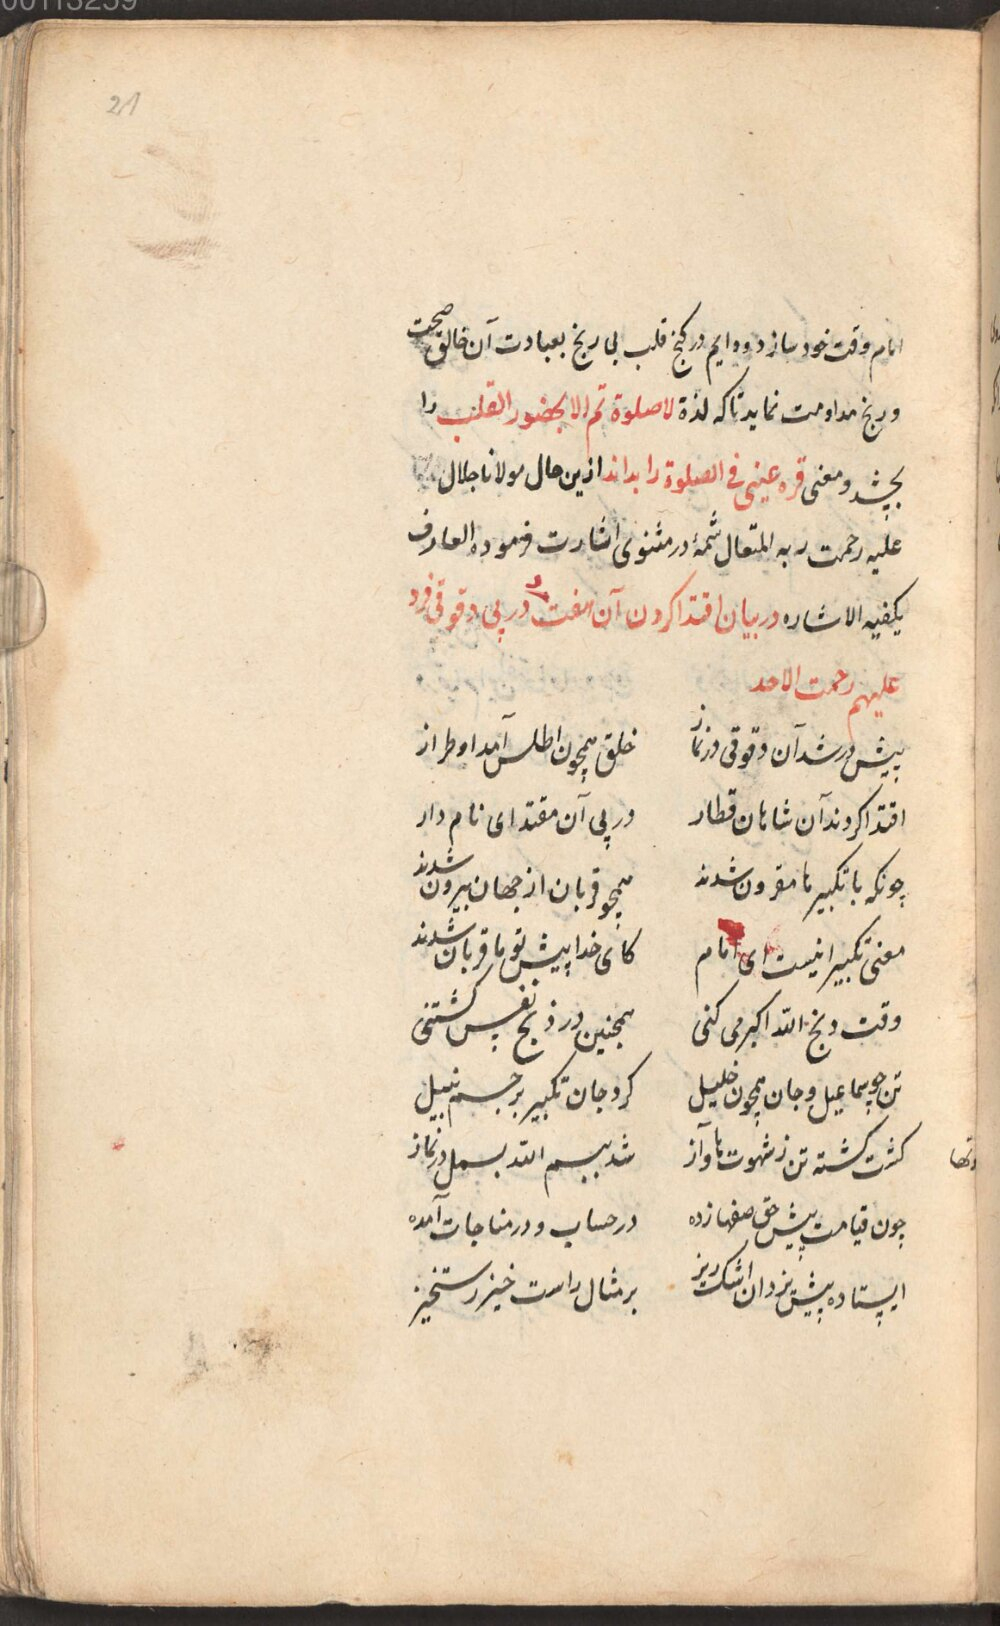 00113259
21
امام وقت خود سازد و دایم در کنج قلب بی رنج بعبادت آن خالق صحت
و رنج مداومت نماید تا که لذة لا صلوة تم الا بحضور القلب را
بچشد و معنی قره عینی فی الصلوة را بداند ازین حال مولانا جلال
علیه رحمت ربه المتعال شمهٔ در مثنوی اشارت فرموده العارف
یکفیه الاشاره در بیان اقتدا کردن آن هفت مرد در پی دقوقی فرد
علیهم رحمت الاحد
پیش در شد آن دقوقی در نماز خلق همچون اطلس آمد او طراز
اقتدا کردند آن شاهان قطار در پی آن مقتدای نام دار
چونکه با تکبیرها مقرون شدند همچو قربان از جهان بیرون شدند
معنی تکبیر اینست ای امام کای خدا پیش تو ما قربان شدند
وقت ذبح الله اکبر می کنی همچنین در ذبح نفس کشتنی
تن چو سماعیل و جان همچون خلیل کرد جان تکبیر بر جسم نبیل
گشت کشته تن ز شهوتها و آز شد ببسم الله بسمل در نماز
چون قیامت پیش حق صفها زده در حساب و در مناجات آمده
ایستاده پیش یزدان اشک ریز بر مثال راست خیز رستخیز